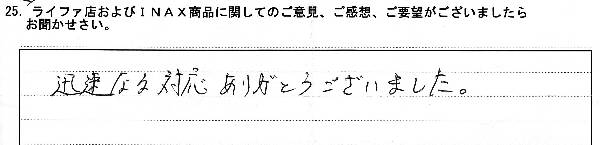 25. ライファ店およびＩＮＡＸ商品に関してのご意見、ご感想、ご要望がございましたら
お聞かせさい。
迅速なる対応ありがとうございました。